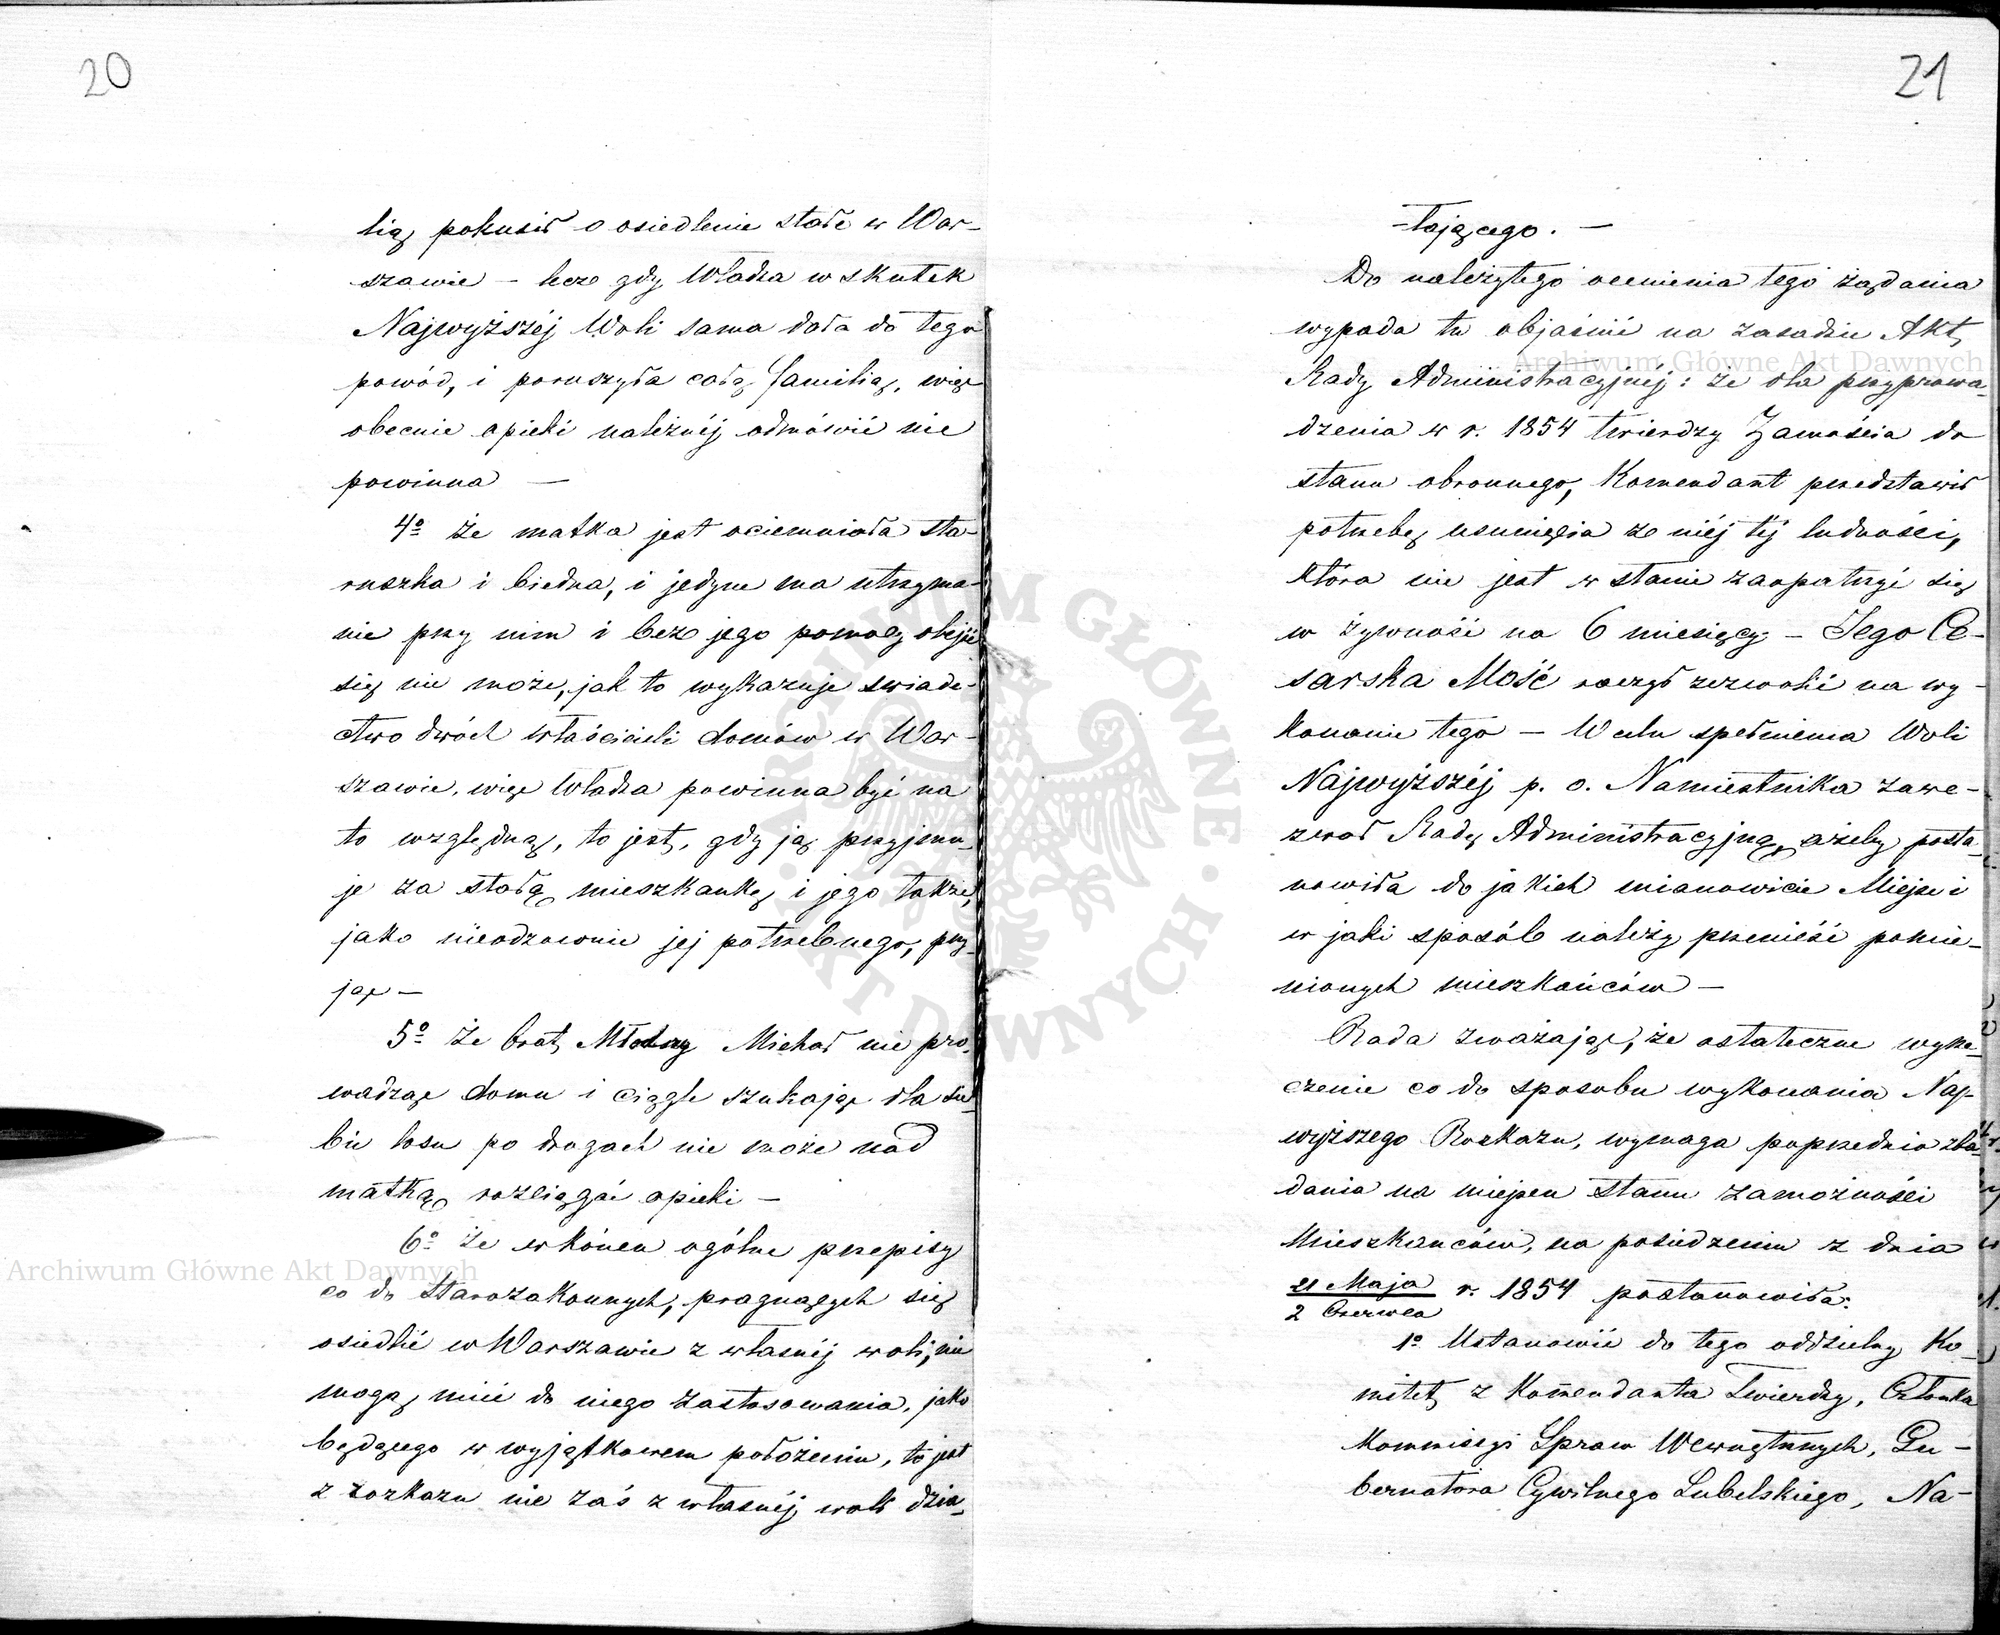 20
lią pokusił o osiedlenie stałe w War-
szawie – lecz gdy Władza w skutek
Najwyższéj Woli sama dała do tego
powód, i poruszyła całą familią, więc
obecnie opieki należnéj odmówić nie
powinna —
4º Że matka jest ociemniała sta-
ruszka i biedna, i jedyne ma utrzyma-
nie przy nim i bez jego pomocy obejść
się nie może, jak to wykazuje świade-
ctwo dwóch właścicieli domów w War-
szawie, więc Władza powinna być na
to względną, to jest, gdy ją przyjmu-
je za stałą mieszkankę i jego także,
jako nieodzownie jej potrzebnego, przy-
jąć —
5º Że brat Młodszy Michał nie pro-
wadząc domu i ciągle szukając dla sie-
bie losu po drogach nie może nad
matką rozciągać opieki —
6º Że w końcu ogólne przepisy
co do Starozakonnych, pragnących się
osiedlić w Warszawie z własnéj woli, nie
mogą mieć do niego zastosowania, jako
będącego w wyjątkowem położeniu, to jest
z rozkazu nie zaś z własnéj woli dzia-
21
-łającego. —
Do należytego ocenienia tego żądania
wypada tu objaśnić na zasadzie Akt
Rady Administracyjnéj: że dla przyprowa-
dzenia w r. 1854 twierdzy Zamościa do
stanu obronnego, Komendant przedstawił
potrzebę usunięcia ze niéj téj ludności,
która nie jest w stanie zaopatrzyć się
w żywność na 6 miesięcy – Jego Ce-
sarska Mość raczył zezwolić na wy-
konanie tego – W celu spełnienia Woli
Najwyższéj p. o. Namiestnika zawe-
zwał Radę Administracyjną, ażeby posta-
nowiła do jakich mianowicie Miejsc i
w jaki sposób należy przenieść pomie-
nionych mieszkańców —
Rada zważając, że ostateczne wyrze-
czenie co do sposobu wykonania Naj-
wyższego Rozkazu, wymaga poprzednio zba-
dania na miejscu stanu zamożności
Mieszkańców, na posiedzeniu z dnia
21 Maja / 2 Czerwca r. 1854 postanowiła:
1º Ustanowić do tego oddzielny Ko-
mitet z Komendanta Twierdzy, Członka
Kommissyi Spraw Wewnętrznych, Gu-
bernatora Cywilnego Lubelskiego, Na-
Archiwum Główne Akt Dawnych
Archiwum Główne Akt Dawnych
ARCHIWUM GŁÓWNE AKT DAWNYCH